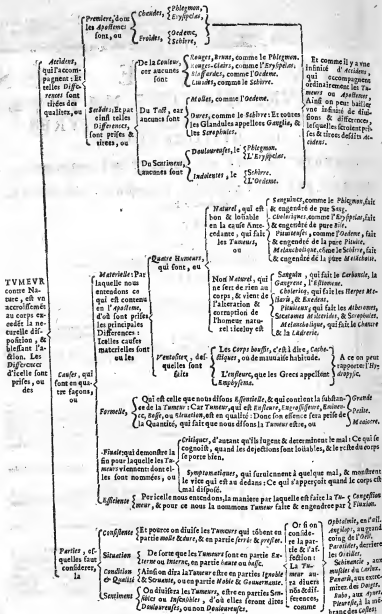 TVMEVR
contre Na-
ture, est vn
accroissemēt
au corps ex-
cedāt la na-
turelle dis-
position, &
blessant l'a-
ction. Les
Differences
d'icelle sont
prises, ou
des
Accidens,
qui l'accom-
pagnent: Et
telles Diffe-
rences sont
tirées des
qualitez, ou
Premiere, dont
les Apostemes
sont, ou
Chaudes,
Phlegmon.
Erysipelas.
Froides,
Oedeme.
Schirre.
Secōde: Et par
ainsi telles
Differences,
sont prises &
tirées, ou
De la Couleur,
car aucunes
sont
Rouges, Brunes, comme le Phlegmon.
Rouges-Claires, comme l'Erysipelas.
Blaffardes, comme l'Oedeme.
Liuides, comme le Schirre.
Du Tact, car
aucunes sont
Molles, comme l'Oedeme.
Dures, comme le Schirre: Et toutes
les Glandules appellees Ganglia, &
les Scrophules.
Du Sentiment,
aucunes sont
Douloureuses, le
Phlegmon.
L'Erysipelas.
Indolentes, le
Schirre.
L'Oedeme.
Et comme il y a vne
infinité d'Accidens
qui accompagnent
ordinairement les Tu-
meurs ou Apostemes,
Ainsi on peut bailler
vne infinité de diui-
sions & differences,
lesquelles seroient pri-
ses & tirees desdits Ac-
cidens.
Causes, qui
sont en qua-
tre façons,
ou
Materielle: Par
laquelle nous
entendons ce
qui est contenu
en l'Aposteme,
d'où sont prises
les principales
Differences:
Icelles causes
materielles sont
ou les
Quatre Humeurs,
qui sont, ou
Naturel, qui est
bon & loüable
en la cause Ante-
cedante, qui fait
les Tumeurs,
ou
Sanguines, comme le Phlegmon, fait
& engendré de pur Sang.
Choleriques, comme l'Erysipelas, fait
& engendré de pure Bile.
Pituiteuses, comme l'Oedeme, fait
& engendré de la pure Pituite.
Melancholique, cōme le Schirre, fait
& engendré de la pure Melācholie.
Non Naturel, qui
ne sert de rien au
corps, & vient de
l'alteration &
corruption de
l'humeur natu-
rel: iceluy est
Sanguin, qui fait le Carboncle, la
Gangrene, l'Esthiomene.
Cholericq, qui fait les Herpes Mi-
liaris, & Exedens.
Pituiteux, qui fait les Atheromes,
Steatomes, Melicerides, & Scrophules.
Melancholique, qui fait le Chancre
& la Ladrerie.
Ventositez, des-
quelles sont
faits
Les Corps bouffis, c'est à dire, Cache-
ctiques, ou de mauuaise habitude.
L'enfleure, que les Grecs appellent
Emphysema.
A ce on peut
rapporter l'Hy-
dropisie.
Formelle,
Qui est celle que nous disons Essentielle, & qui contient la substan-
ce de la Tumeur: Car Tumeur, qui est Enfleure, Engrossissure, Eminen-
ce, Bosse, ou Eleuation, est en qualité: Donc son essence sera prise de
la Quantité, qui fait que nous disons la Tumeur estre, ou
Grande.
Petite.
Mediocre.
Finale: qui demonstre la
fin pour laquelle les Tu-
meurs viennent: dont el-
les sont nommées, ou
Critiques, d'autant qu'ils iugent & determinent le mal: Ce qui se
cognoist, quand les dejections sont loüables, & le reste du corps
se porte bien.
Symptomatiques, qui suruiennent à quelque mal, & monstrent
le vice qui est au dedans: Ce qui s'apperçoit quand le corps est
mal disposé.
Efficiente
Par icelle nous entendons, la maniere par laquelle est faite la Tu-
meur, & pour ce nous la nommons Tumeur faite & engendree par
Congestion.
Fluxion.
Parties, es-
quelles faut
considerer,
la
Consistence
Et pource on diuise les Tumeurs qui tōbent en
partie molle & dure, & en partie ferme & presser.
Situation
De sorte que les Tumeurs sont en partie Ex-
terne ou Interne, en partie haute ou basse.
Condition
& Qualité
Ainsi on dira la Tumeur estre en parties Ignoble
& Seruante, ou en partie Noble & Gouuernante.
Sentiment
On diuisera les Tumeurs, estre en parties Sen-
sibles ou Insensibles, d'où elles seront dites
Douloureuses, ou non Douloureuses.
Or si on
conside-
re la par-
tie & l'af-
fection:
La Tu-
meur au-
ra diuers
nōs & dif-
ferences,
comme
Ophtalmie, en l'œil.
Anguilops, au grand
coing de l'œil.
Parotides, derriere
les Oreilles.
Schinancie, aux
muscles du Larinx.
Panaris, aux extre-
mitez des Doigts.
Bubo, aux Aynes.
Pleuresie, à la mē-
brane des Costes.